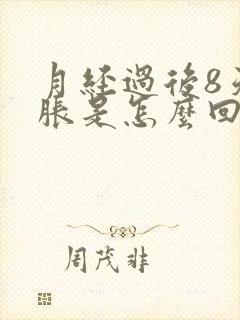 月經過後8天
脹是怎麼回
周茂非